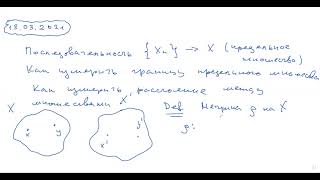 18.03.2021
Последовательность {Xₙ} → X (предельное
множество)
Как измерить границу предельного множества
Как измерить расстояние между
X множествами X'
Def Метрика ρ на X
ρ:
x y
x' y'